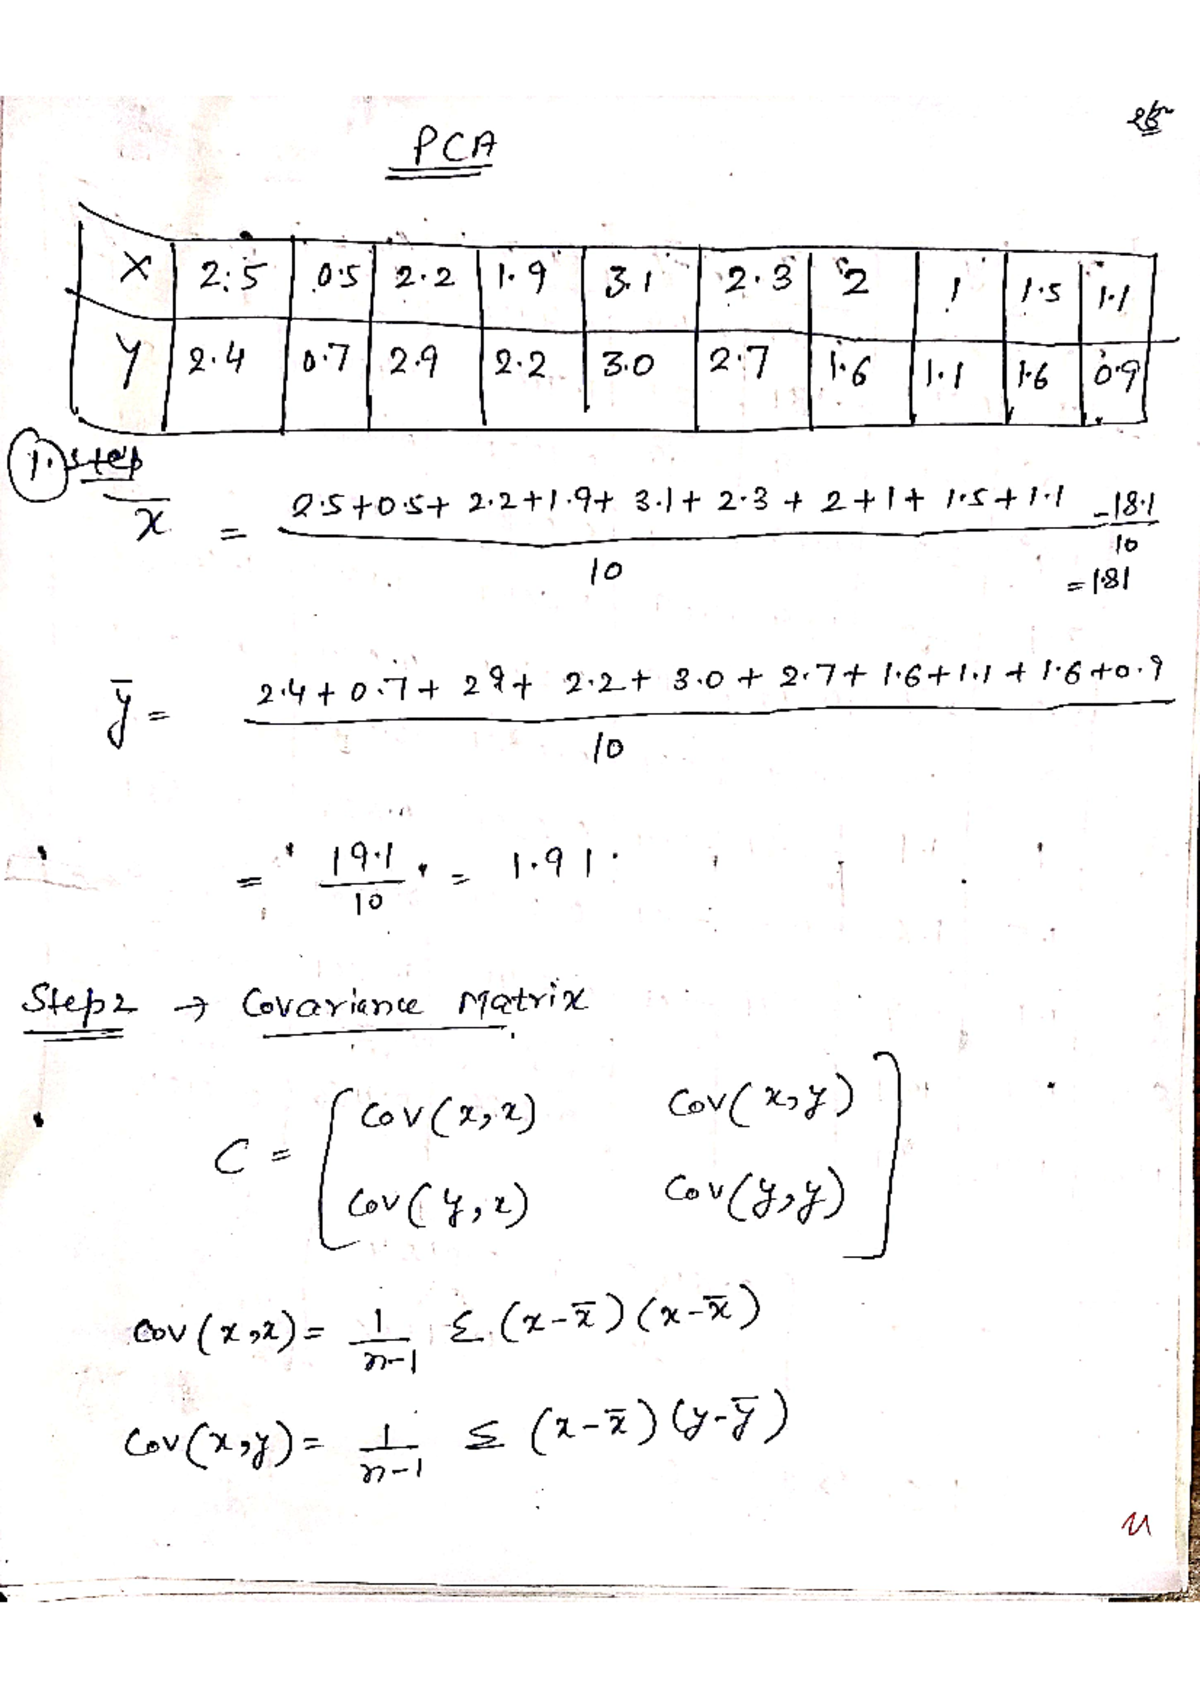 PCA
X 2.5 0.5 2.2 1.9 3.1 2.3 2 1 1.5 1.1
Y 2.4 0.7 2.9 2.2 3.0 2.7 1.6 1.1 1.6 0.9
1. step
x̄ = 2.5+0.5+ 2.2+1.9+ 3.1+ 2.3 + 2+1+ 1.5+1.1 / 10 = 18.1 / 10
= 1.81
ȳ = 2.4+0.7+ 29+ 2.2+ 3.0+ 2.7+ 1.6+1.1 + 1.6+0.9 / 10
= 19.1 / 10 = 1.91
Step2 → Covariance Matrix
C = [ Cov(x,x) Cov(x,y)
Cov(y,x) Cov(y,y) ]
Cov(x,x) = 1/n-1 Σ (x-x̄)(x-x̄)
Cov(x,y) = 1/n-1 Σ (x-x̄)(y-ȳ)